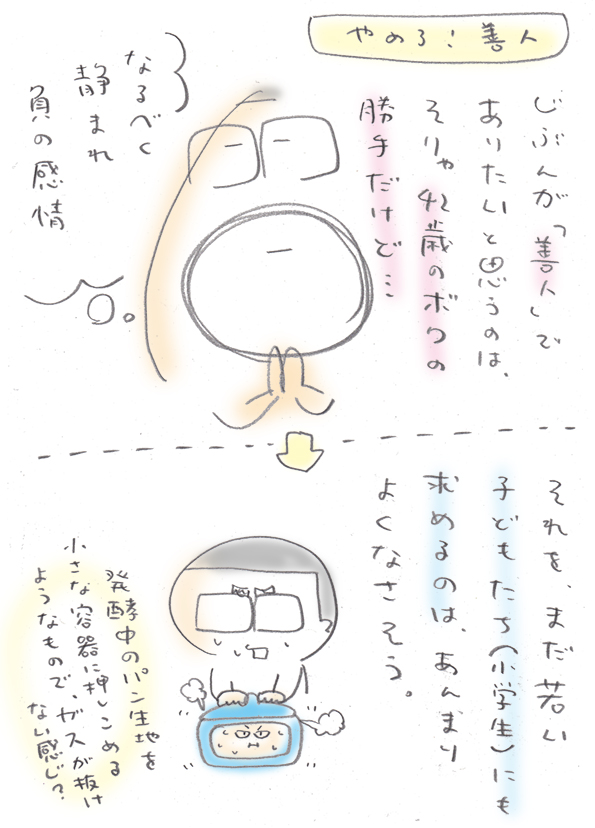 やめろ！善人
じぶんが「善人」で
ありたいと思うのは、
そりゃ42歳のボクの
勝手だけど…
なるべく
静まれ
負の感情
それを、まだ若い
子どもたち(小学生)にも
求めるのは、あんまり
よくなさそう。
発酵中のパン生地を
小さな容器に押しこめる
ようなもので、ガスが抜け
ない感じ？